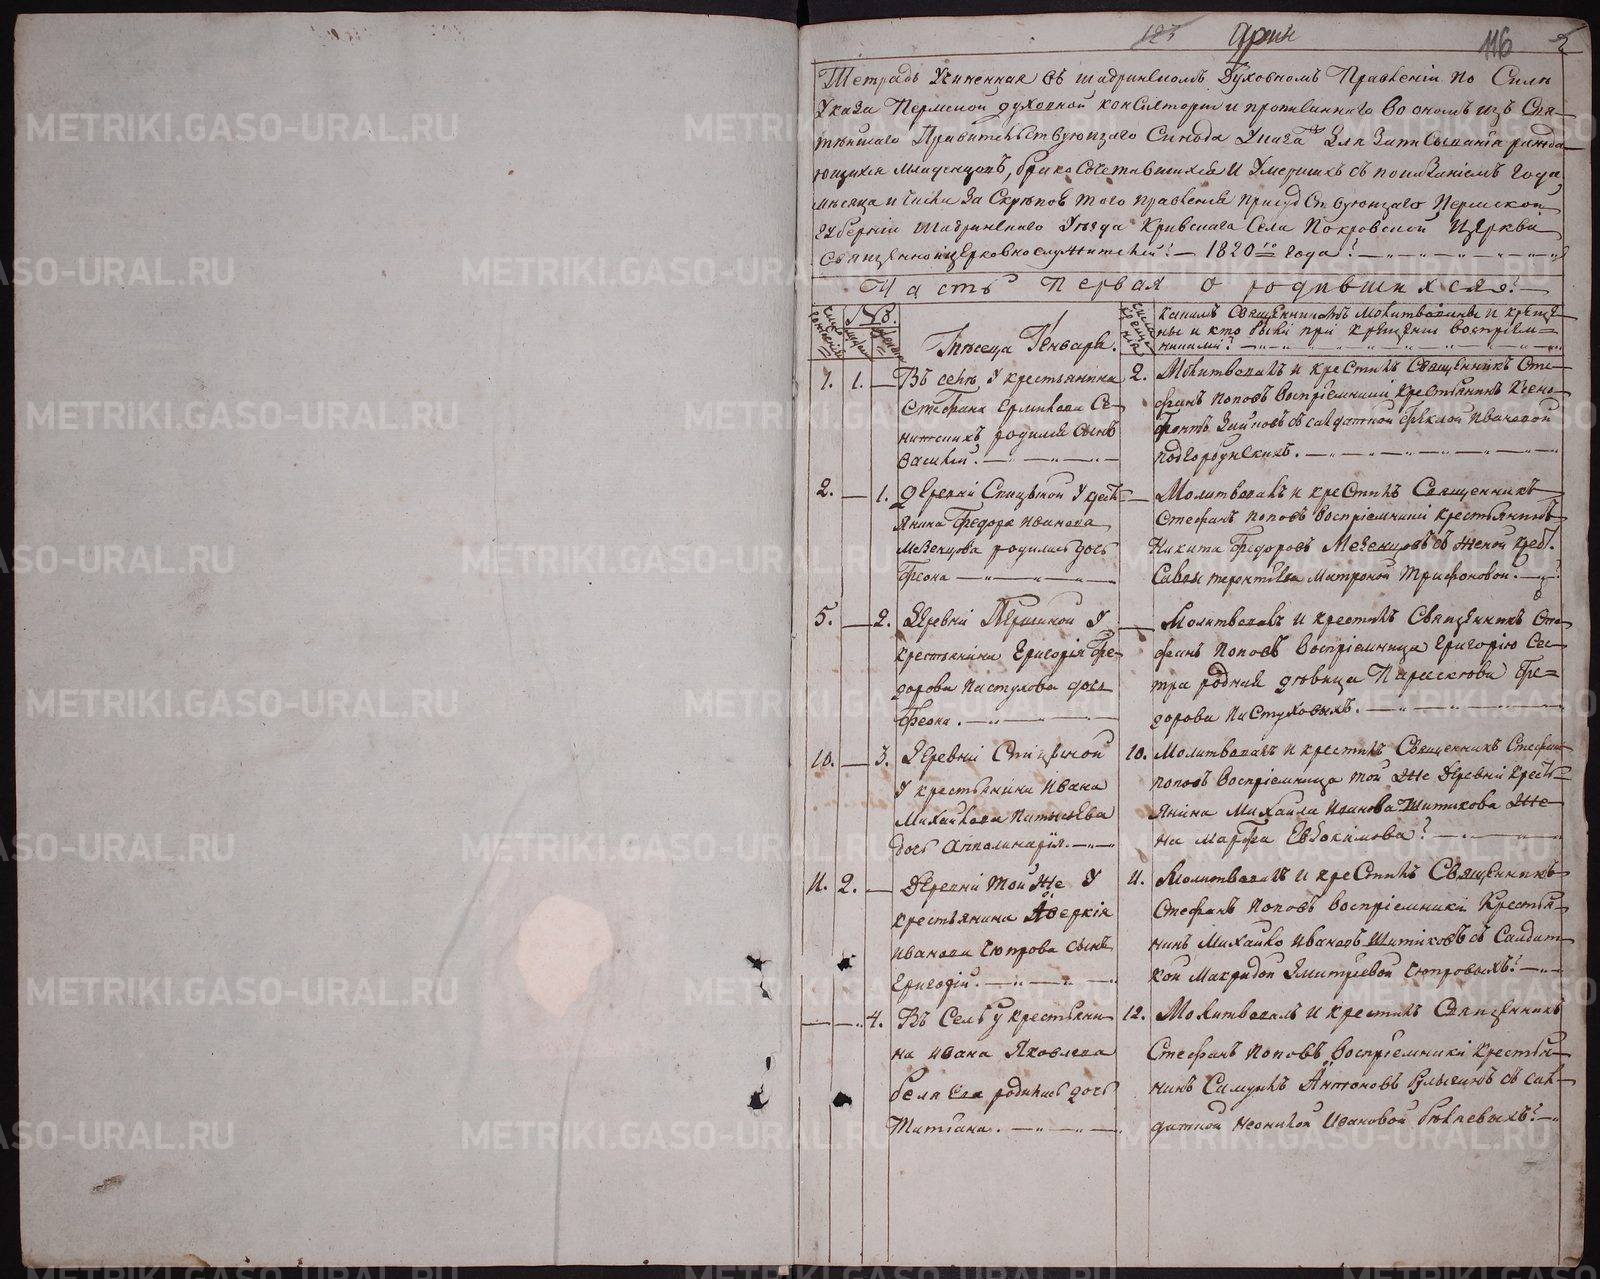 116
Тетрадь Учиненная въ шадринскомъ Духовномъ Правленіи по Силѣ
Указа Пермской духовной консисторіи и прописаннаго во ономъ изъ Свя-
тѣйшаго Правительствующаго Синода Указа Для Записыванія ражда-
ющихся младенцовъ, бракосочетавшихся и Умершихъ съ показаніемъ года,
мѣсяца и числа За Скрѣпою того правленія присудствующаго Пермской
губерніи Шадринскаго Уѣзда Кривскаго Села Покровской Церкви
Священноицерковнослужителей. 1820го года
Часть первая о родившихся
№
Мѣсяца Генварь.
Какимъ Священникомъ Молитвованы и креще-
ны и кто были при крещеніи воспріем-
никами?
1. 1. — Въ селѣ У крестьянина
Стефана Ермилова Се-
родился сынъ
Василей.
2. Молитвовалъ и крестилъ Священникъ Сте-
фанъ Поповъ Воспріемники крестьянинъ Ксено-
фонтъ Зайковъ съ салдаткой Ѳеклой Ивановой
2. — 1. Деревни Спицыной У кресть-
янина Федора Иванова
Мезенцова родилась дочь
Феона
Молитвовалъ и крестилъ Священникъ
Стефанъ Поповъ Воспріемники крестьянинъ
Никита Федоровъ Мезенцовъ съ женой крест.
Савы терентьева Матроной Трифоновой.
5. — 2. Деревни Першиной У
крестьянина Григорія Фе-
дорова Пастухова дочь
Феона.
Молитвовалъ и крестилъ Священникъ Сте-
фанъ Поповъ Воспріемница Григорію Сес-
тра родная дѣвица Параскева Фе-
дорова Пастуховыхъ.
10. — 3. Деревни Спицыной
У крестьянина Ивана
Михайлова
дочь Апполинарія.
10. Молитвовалъ и крестилъ Священникъ Стефанъ
Поповъ Воспріемница той же Деревни кресть-
янина Михаила Иванова Шитикова Же-
на Марфа Евдокимова
11. 2. — Деревни той же У
крестьянина Аверкія
Иванова Чюпрова сынъ
Григорій.
11. Молитвовалъ и крестилъ Священникъ
Стефанъ Поповъ Воспріемники Крестья-
нинъ Михайло Ивановъ Шитиковъ съ Салдат-
кой Макридой Дмитріевой Чюпровыхъ
— — 4. Въ Селѣ у крестьяни-
на Ивана Яковлева
родилась дочь
Татіана.
12. Молитвовалъ и крестилъ Священникъ
Стефанъ Поповъ Воспріемники Крестья-
нинъ Антоновъ съ сал-
даткой Ивановой
METRIKI.GASO-URAL.RU